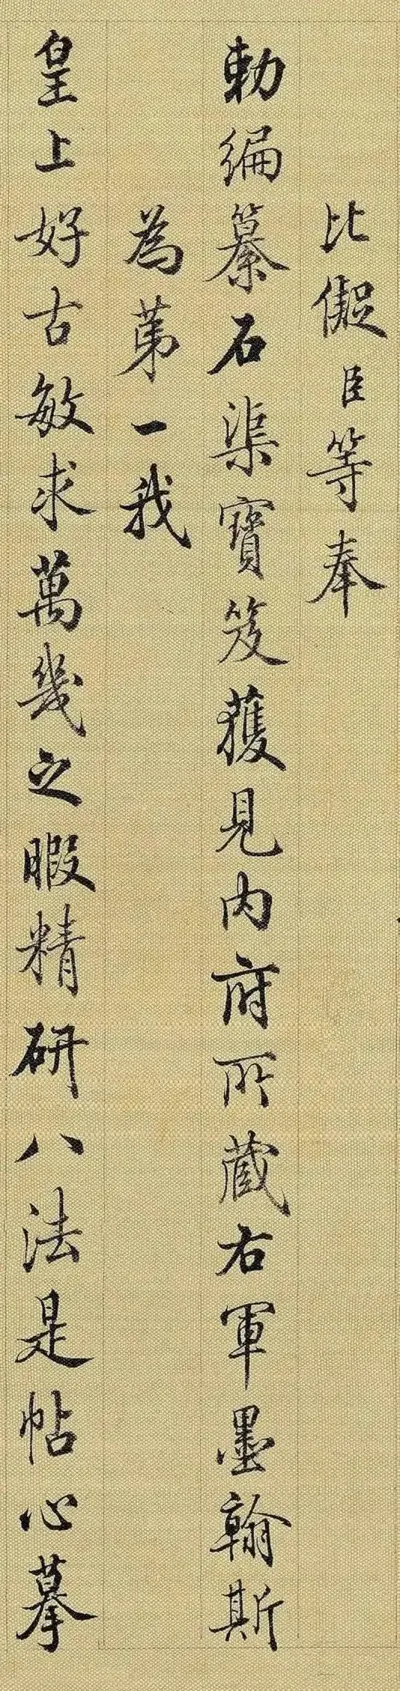 比儗臣等奉
勅編纂石渠寶笈獲見内府所蔵右軍墨翰斯
為苐一我
皇上好古敏求萬幾之暇精研八法是帖心摹